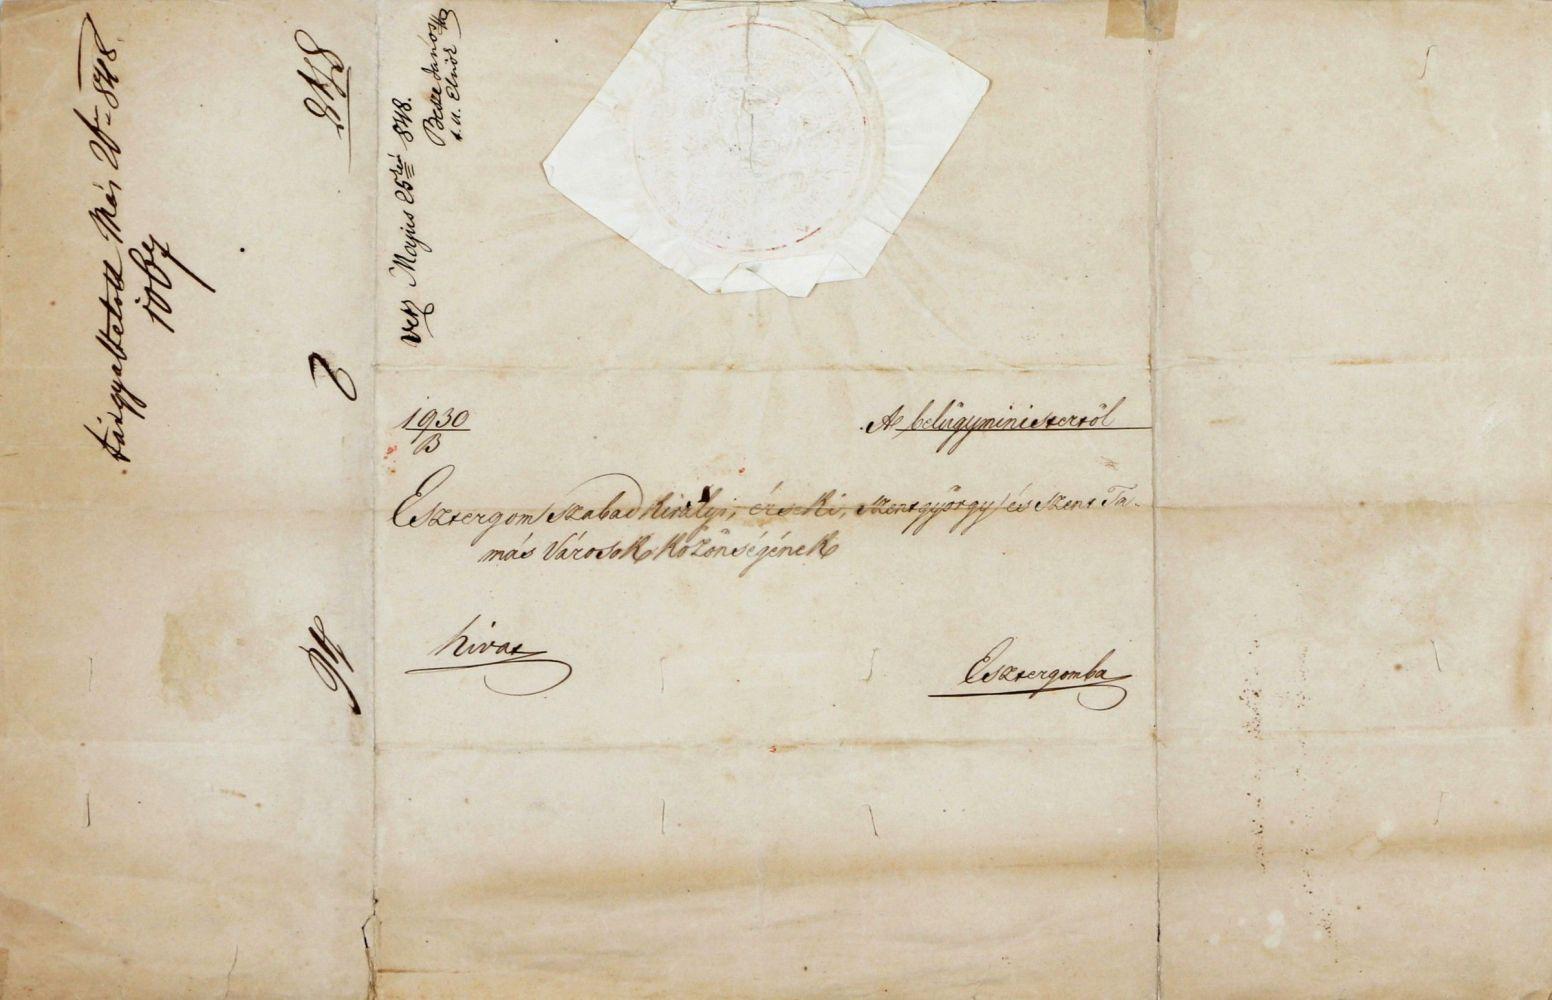 tárgyaltatott Máj 26án 848.
848
Vet. Majus 25kén 848.
Besze János
1930
B
A belügyministertöl
Esztergom szabad királyi, érseki, szentgyörgy és szent Ta-
más Városok közönségének
hivat
Esztergomba